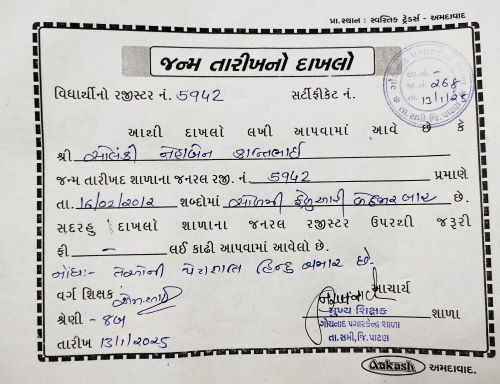 પ્રા.સ્થાન : સ્વસ્તિક ટ્રેડર્સ - અમદાવાદ
જન્મ તારીખનો દાખલો
વિદ્યાર્થીનો રજીસ્ટર નં. 5942 સર્ટીફીકેટ નં.
જા.નં. 268
તા. 13/1/25
તા.સમી,જિ.પાટણ
આથી દાખલો લખી આપવામાં આવે છે કે
શ્રી સોલંકી નેહાબેન કાન્તીભાઈ
જન્મ તારીખદ શાળાના જનરલ રજી. નં. 5942 પ્રમાણે
તા. 16/02/2012 શબ્દોમાં સોળમી ફેબ્રુઆરી બેહજાર બાર છે.
સદરહુ દાખલો શાળાના જનરલ રજીસ્ટર ઉપરથી જરૂરી
ફી - લઈ કાઢી આપવામાં આવેલો છે.
નોંધ:- તેઓની પેટાજાતિ હિન્દુ ચમાર છે.
વર્ગ શિક્ષક
આચાર્ય
શ્રેણી - 8બ
મુખ્ય શિક્ષક
શાળા
ગોચનાદ પગારકેન્દ્ર શાળા
તા.સમી,જિ.પાટણ
તારીખ 13/1/2025
Aakash અમદાવાદ.